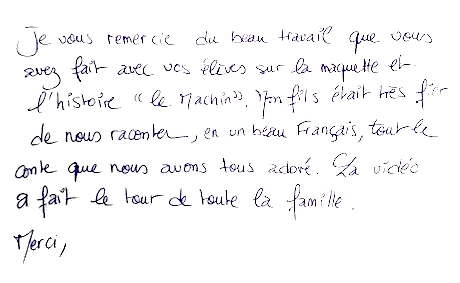 Je vous remercie du beau travail que vous
avez fait avec vos élèves sur la maquette et
l'histoire "le Machin". Mon fils était très fier
de nous raconter, en un beau Français, tout le
conte que nous avons tous adoré. La vidéo
a fait le tour de toute la famille.
Merci,